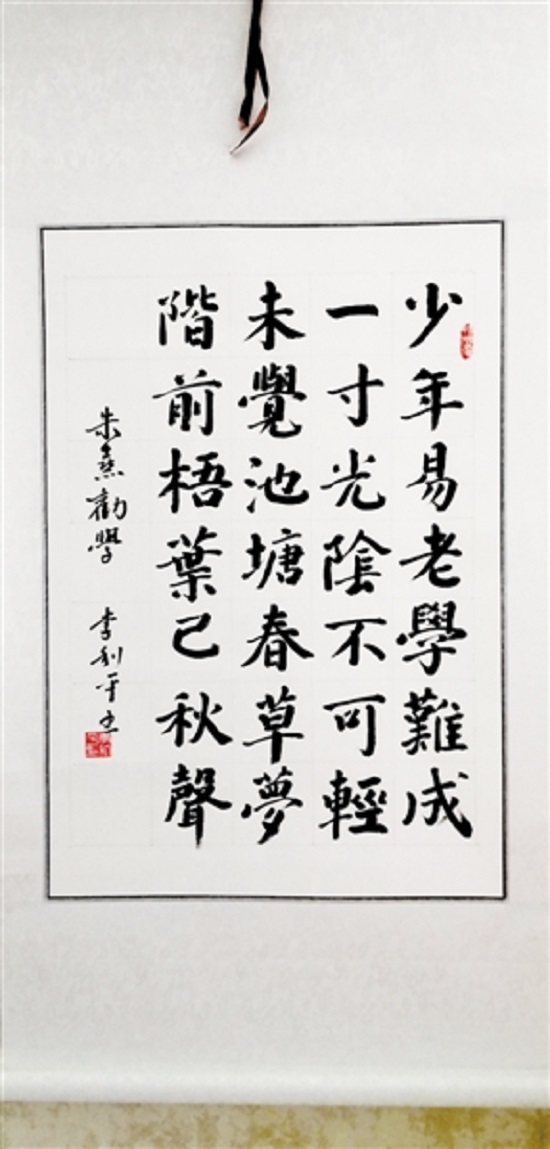 少年易老學難成
一寸光陰不可輕
未覺池塘春草夢
階前梧葉己秋聲
朱熹勸學 李利平書